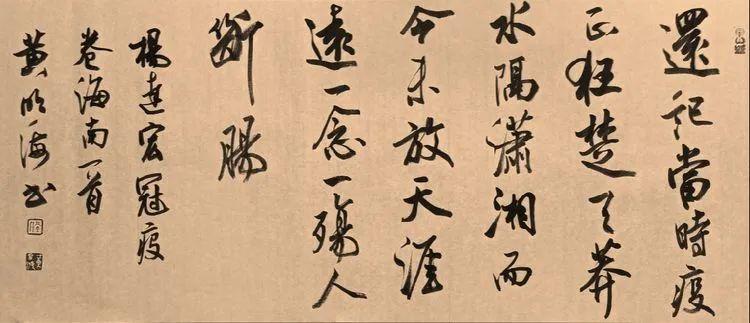 還記當時疫
正狂楚天莽
水隔瀟湘而
今未放天涯
遠一念一殤人
斷腸
楊建宏冠疫
卷海南一首
黄明海書